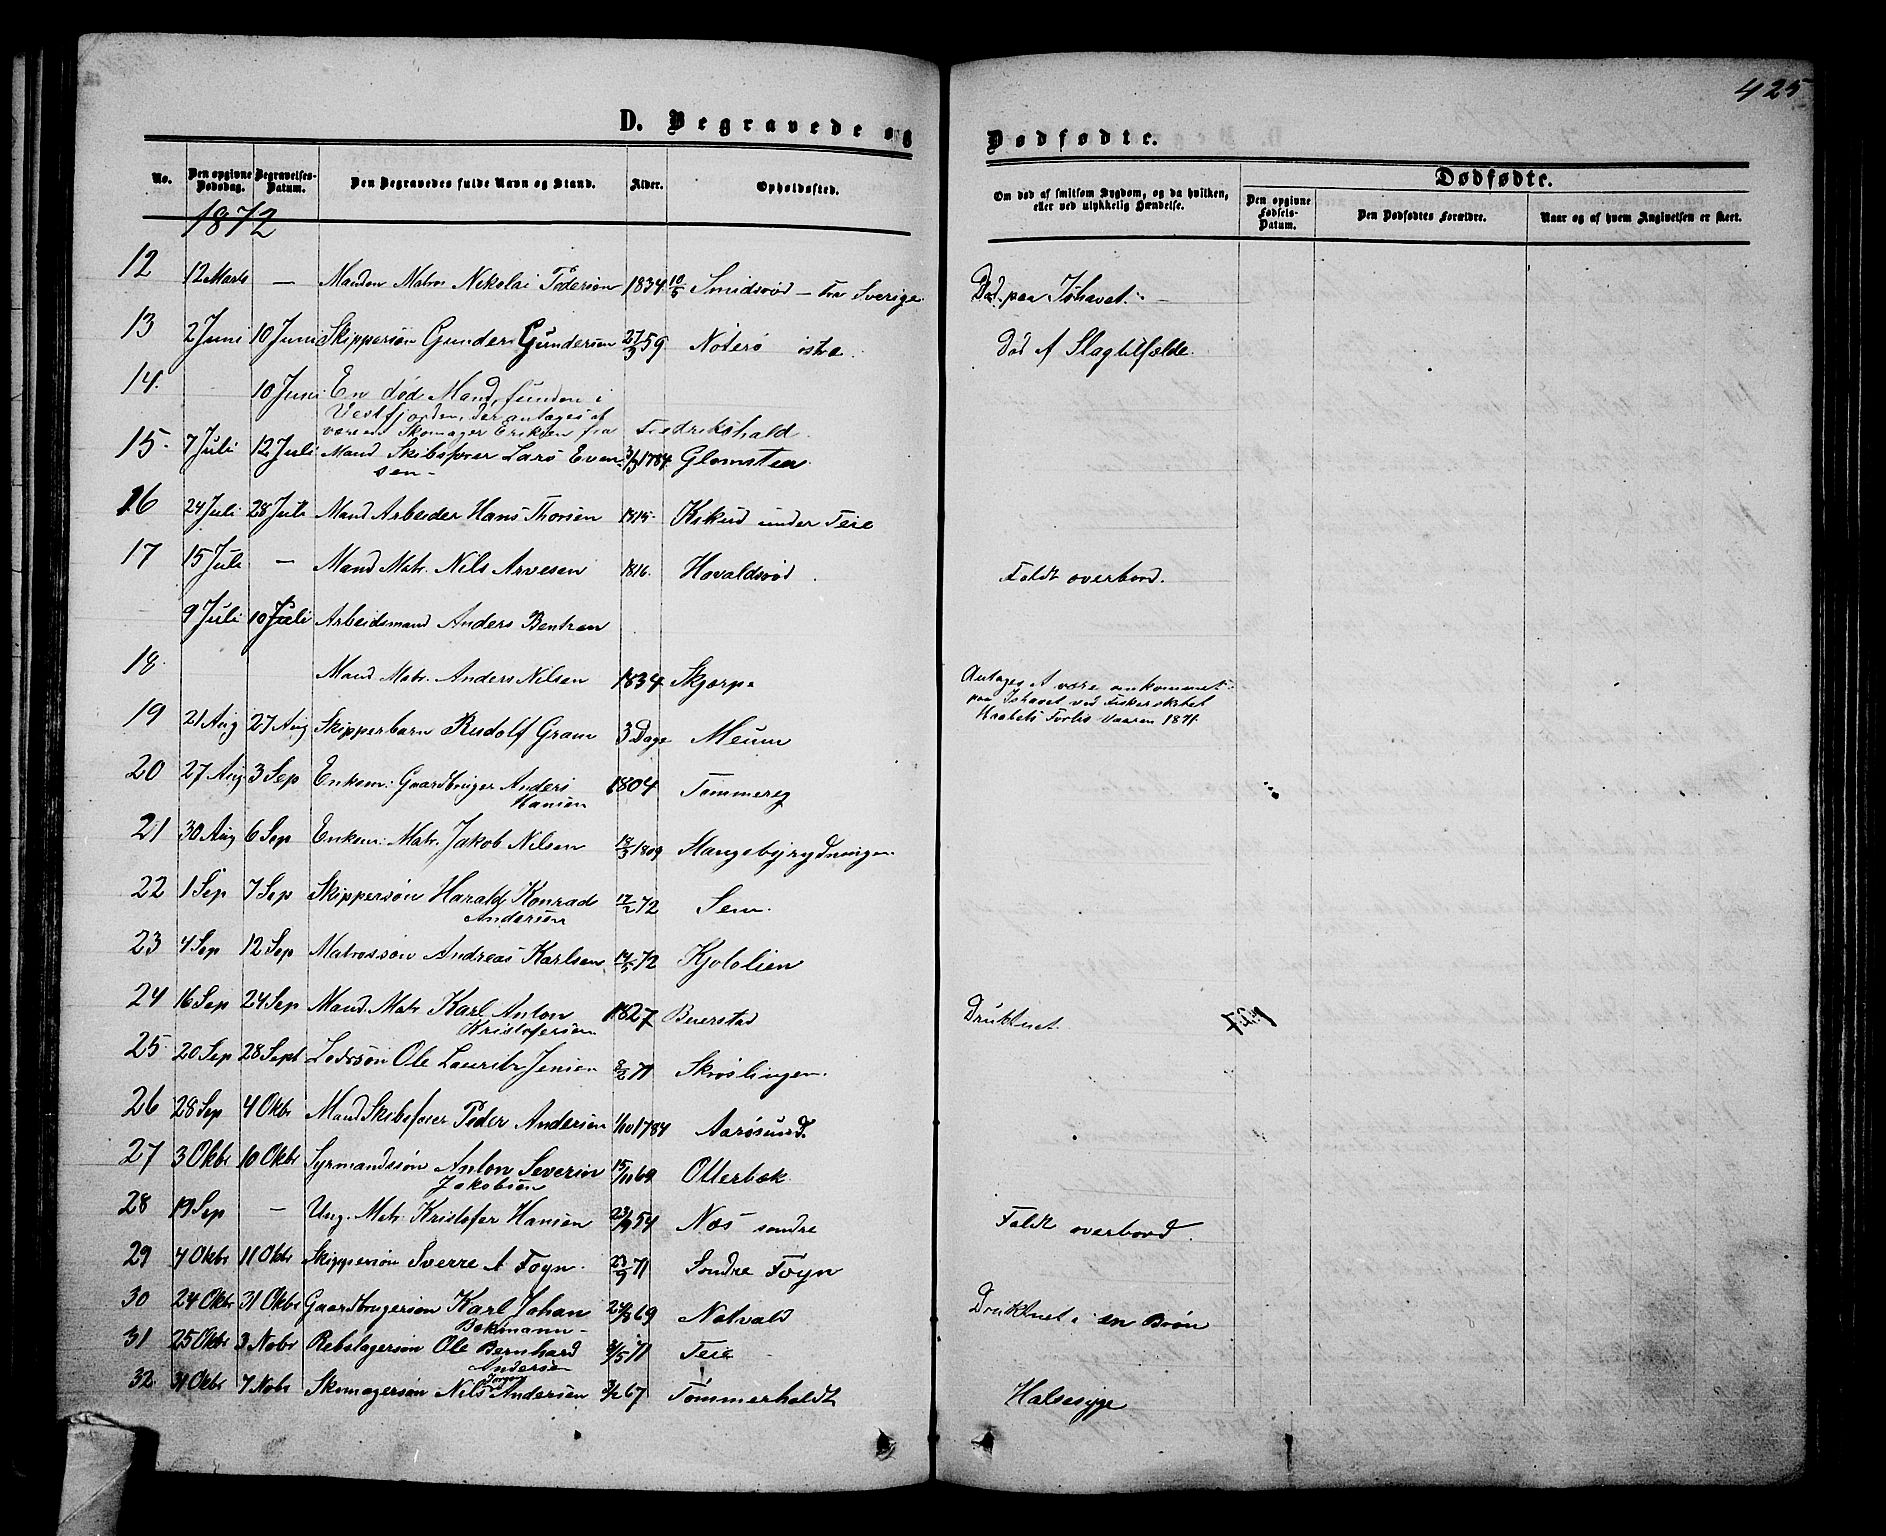 425
D. Begravede og Dødfødte.
No. Den opgivne Dødsdag. Begravelses-Datum. Den Begravedes fulde Navn og Stand. Alder. Opholdssted. Om død af smitsom Sygdom, og da hvilken, eller ved ulykkelig Hændelse. Dødfødte.
Den opgivne Fødsels-Datum. Den Dødfødtes Forældre. Naar og af hvem Angivelsen er skeet.
1872
12 12 Marts — Manden Matros Nikolai Pedersøn 1834 10/5 Smidsrød – fra Sverige Død paa Ishavet. –
13 2 Juni 10 Juni Skippersøn Gunder Gundersen 27/3 59 Nøterø østre Død af Slagtilfælde.
14. 10 Juni En død Mand, funden i
Vestfjorden, der antages at
være en Skomager Eriksen fra Fredrikshald.
15 7 Juli 12 Juli Mand Skibsfører Lars Even- 3/3 1784 Glomstein.
sen –
16 24 Juli 28 Juli Mand Arbeider Hans Thorsen 1815 Kikud under Teie
17 15 Juli — Mand Matr. Nils Arvesen 1816. Hovaldsrød Faldt overbord.
9 Juli 10 Juli Arbeidsmand Anders Bentsen
18. Mand Matr. Anders Nilsen 1834 Skjærpe Antages at være omkommet
paa Ishavet ved Fiskerskibet
Haabets Forlis Vaaren 1871.
19 21 Aug 27 Aug Skipperbarn Rudolf Gram 3 Dage Meum
20 27 Aug 3 Sep Enkem: Gaardbruger Anders 1804 Tømmereg
Hansen
21 30 Aug 6 Sep Enkem: Matr. Jakob Nilsen 17/3 1809 Mangebyrydningen.
22 1 Sep 7 Sep Skippersøn Harald Konrad 17/2 72 Sem.
Andersen
23 4 Sep 12 Sep Matrossøn Andreas Karlsen 14/5 72 Kjølolien
24 16 Sep 24 Sep Mand Matr Karl Anton 1827 Buerstad Druknet.
Kristofersen
25 20 Sep 28 Sept Lodssøn Ole Lauritz Jensen 8/2 71 Skrøslingen.
26 28 Sep 4 Okbr Mand Skibsfører Peder Andersen 1/10 1784 Aarøsund.
27 3 Okbr 10 Okbr Syrmandssøn Anton Severin 15/11 69 Otterbæk
Jakobsen
28 19 Sep — Ung. Matr. Kristofer Hansen 23/9 54 Næs søndre Faldt overbord.
29 4 Okbr 11 Okbr Skippersøn Sverre A Foyn. 29/9 71 Søndre Foyn
30 24 Okbr 31 Okbr Gaardbrugersøn Karl Johan 24/8 69 Nøtvald Druknet i en Brøn
Bokmann –
31 25 Okbr 3 Nobr Rebslagersøn Ole Bernhard 3/5 71 Teie
Andersen
32 31 Okbr 7 Nobr Skomagersøn Nils Andersen 3/2 67 Tømmerholdt Halsesyge